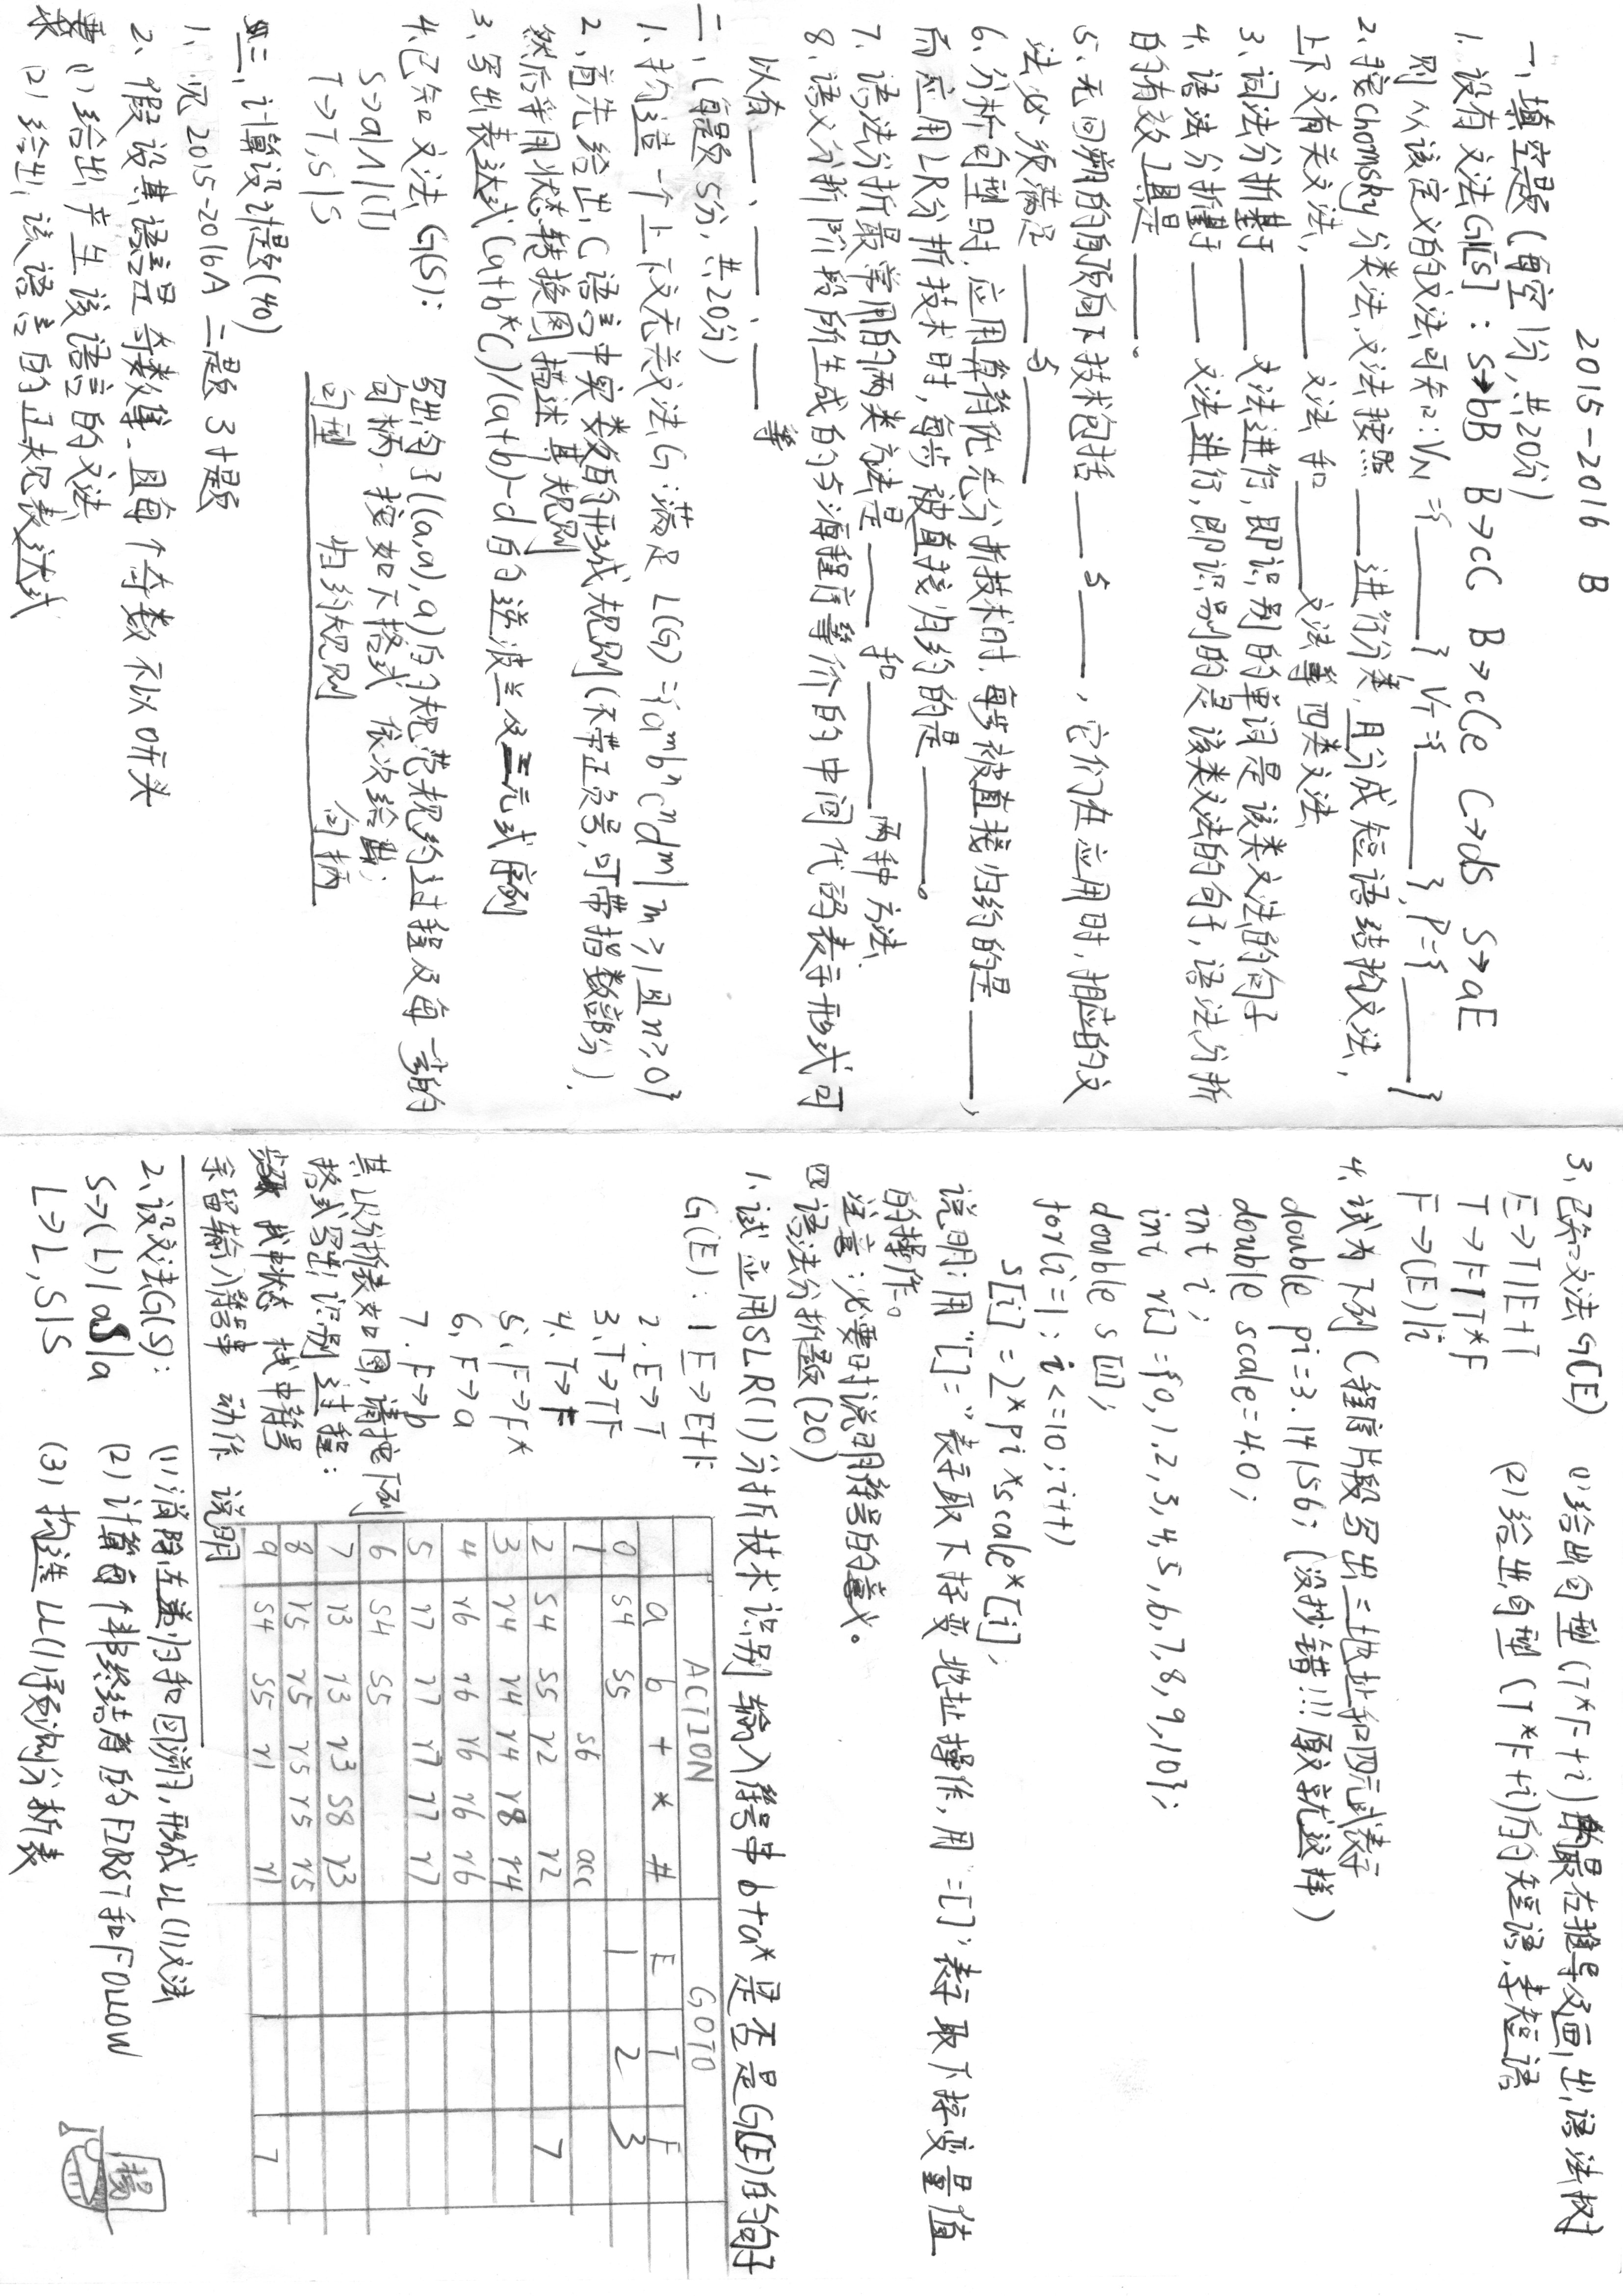 2015-2016 B
一、填空题(每空1分,共20分)
1. 设有文法G[S]: S→bB B→cC B→cCe C→dS S→aE
则从该定义的文法可知:VN={____}, VT={____}, P={____}
2、按Chomsky分类法,文法按照____进行分类,且分成短语结构文法,
上下文有关文法,____文法和____文法等四类文法
3、词法分析基于____文法进行,即识别的单词是该类文法的句子
4、语法分析基于____文法进行,即识别的是该类文法的句子,语法分析
的有效工具是____。
5、无回朔的自顶向下技术包括____与____,它们在应用时,相应的文
法必须满足____与____
6、分析句型时,应用算符优先分析技术时,每步被直接归约的是____,
而应用LR分析技术时,每步被直接归约的是____。
7、语法分析最常用的两类方法是____和____两种方法.
8、语义分析阶段所生成的与源程序等价的中间代码表示形式可
以有____、____、____等
二、(每题5分,共20分)
1、构造一个上下文无关文法G:满足 L(G)={a^m b^n c^n d^m | m≥1且n≥0}
2、首先给出C语言中实数的形成规则(不带正负号,可带指数部分),
然后采用状态转换图描述其规则
3、写出表达式(a+b*c)/(a+b)-d的逆波兰及三元式序列
4.已知文法G(S): 写出句子((a,a),a)的规范规约过程及每一步的
句柄. 按如下格式 依次给出;
S→a|∧|(T)
T→T,S|S
句型 归约规则 句柄
三、计算设计题(40)
1、见2015-2016A 二题 3小题
2、假设某语言是奇数集,且每个奇数不以0开头
要求 (1)给出产生该语言的文法
(2)给出该语言的正规表达式
3、已知文法G[E] (1)给出句型(T*F+i)的最右推导及画出语法树
E→T|E+T (2)给出句型(T*F+i)的短语,素短语
T→F|T*F
F→(E)|i
4、试为下列C程序片段写出三地址和四元式表示
double pi=3.14156; (没抄错!!!原文就这样)
double scale=4.0;
int i;
int r[]={0,1,2,3,4,5,6,7,8,9,10};
double s[11];
for(i=1; i<=10; i++)
s[i]=2*pi*scale*[i];
说明:用"[]="表示取下标变地址操作,用"=[]"表示取下标变量值
的操作。
注意:必要时说明符号的意义。
四 语法分析题(20)
1、试应用SLR(1)分析技术识别输入符号串b+a*是否是G(E)的句子
G(E): 1 E→E+F
2. E→T
3、T→TF
4. T→F
5、F→F*
6、F→a
7. F→b
其LR分析表如图,请按下列
格式写出识别过程:
步骤 栈中状态 栈中符号
余留输入符号串 动作 说明
ACTION GOTO
a b + * # E T F
0 s4 s5 1 2 3
1 s6 acc
2 s4 s5 r2 r2 7
3 r4 r4 r4 r8 r4
4 r6 r6 r6 r6 r6
5 r7 r7 r7 r7 r7
6 s4 s5
7 r3 r3 r3 s8 r3
8 r5 r5 r5 r5 r5
9 s4 s5 r1 r1 7
2、设文法G(S): (1)消除左递归和回溯,形成LL(1)文法
S→(L)|aS|a (2)计算每个非终结符的FIRST和FOLLOW
L→L,S|S (3)构造LL(1)预测分析表
楊